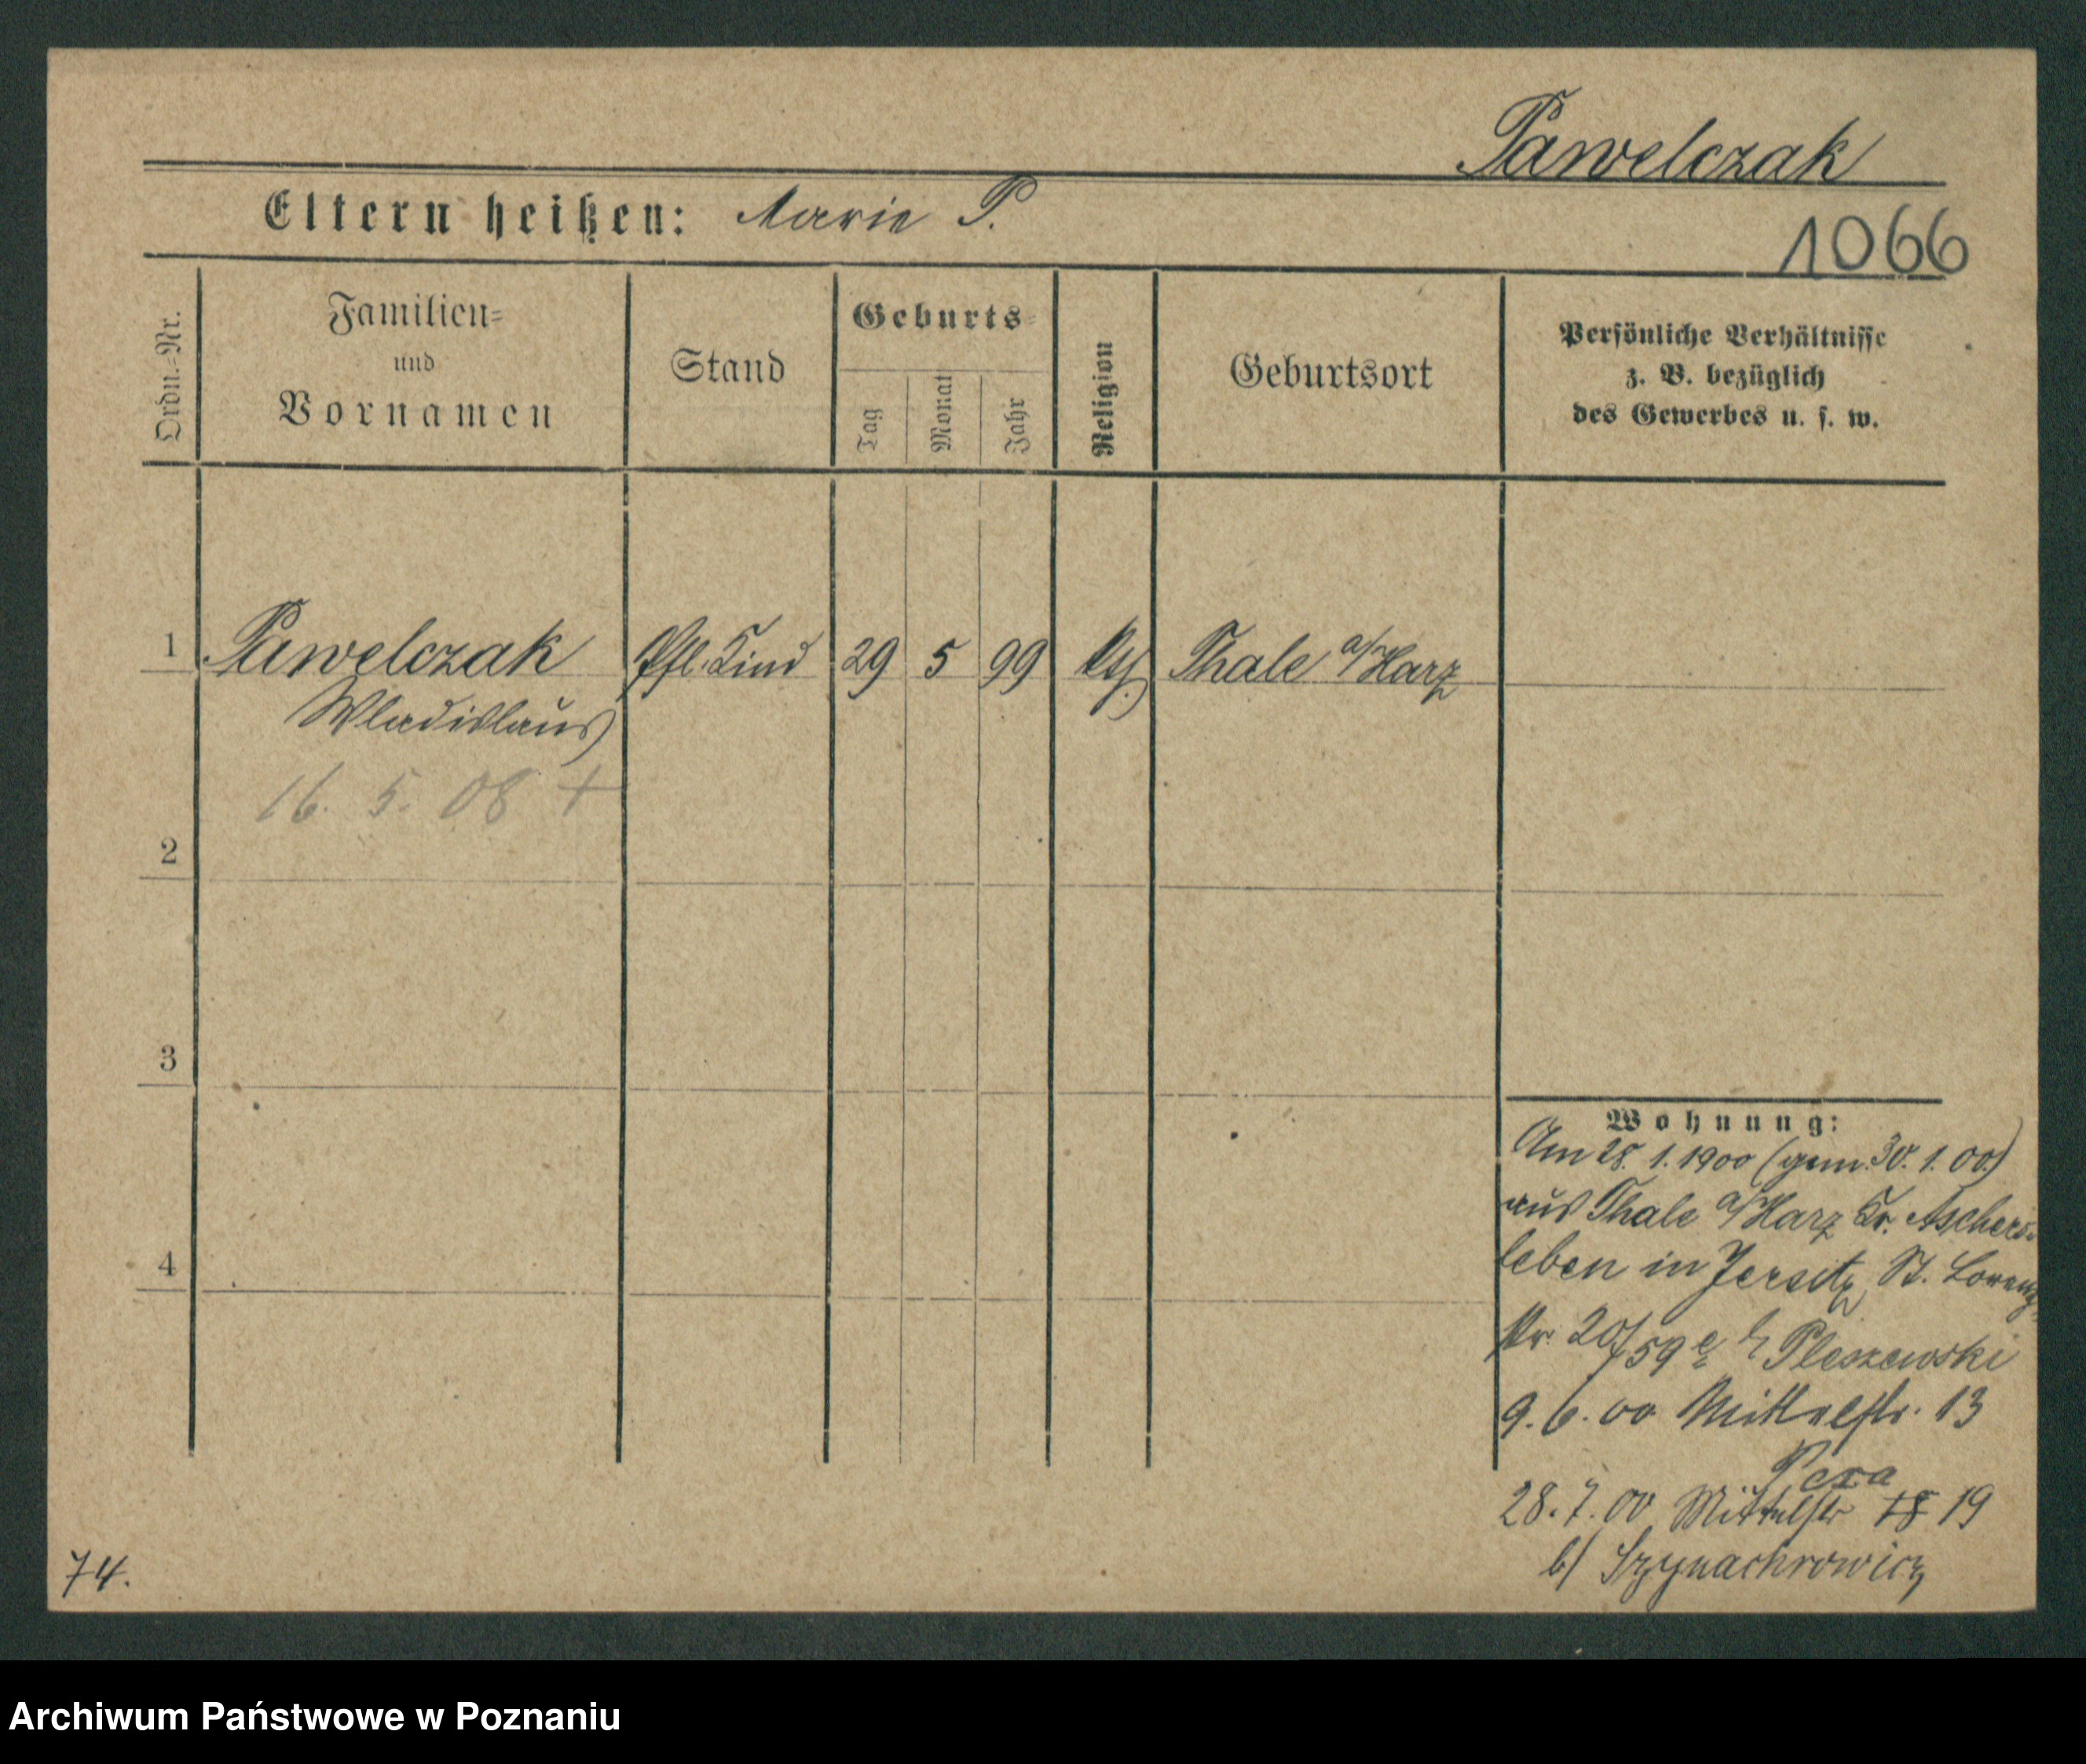 Pawelczak
Eltern heißen: Marie P.
1066
Ordn.-Nr.
Familien-
und
Vornamen
Stand
Geburts-
Tag
Monat
Jahr
Religion
Geburtsort
Persönliche Verhältnisse
z. B. bezüglich
des Gewerbes u. s. w.
1 Pawelczak Pfl. Kind 29 5 99 Thale a/Harz
Wladislaus
16. 5. 08 +
2
3
4
Wohnung:
Am 28. 1. 1900 (gem. 30. 1. 00)
aus Thale a/Harz Kr. Aschers-
leben in Jersitz, St. Lorenz
20/59 Pleszewski
9. 6. 00 Mittelstr. 13
28. 7. 00 Mittelstr 18 19
b/
74.
Archiwum Państwowe w Poznaniu